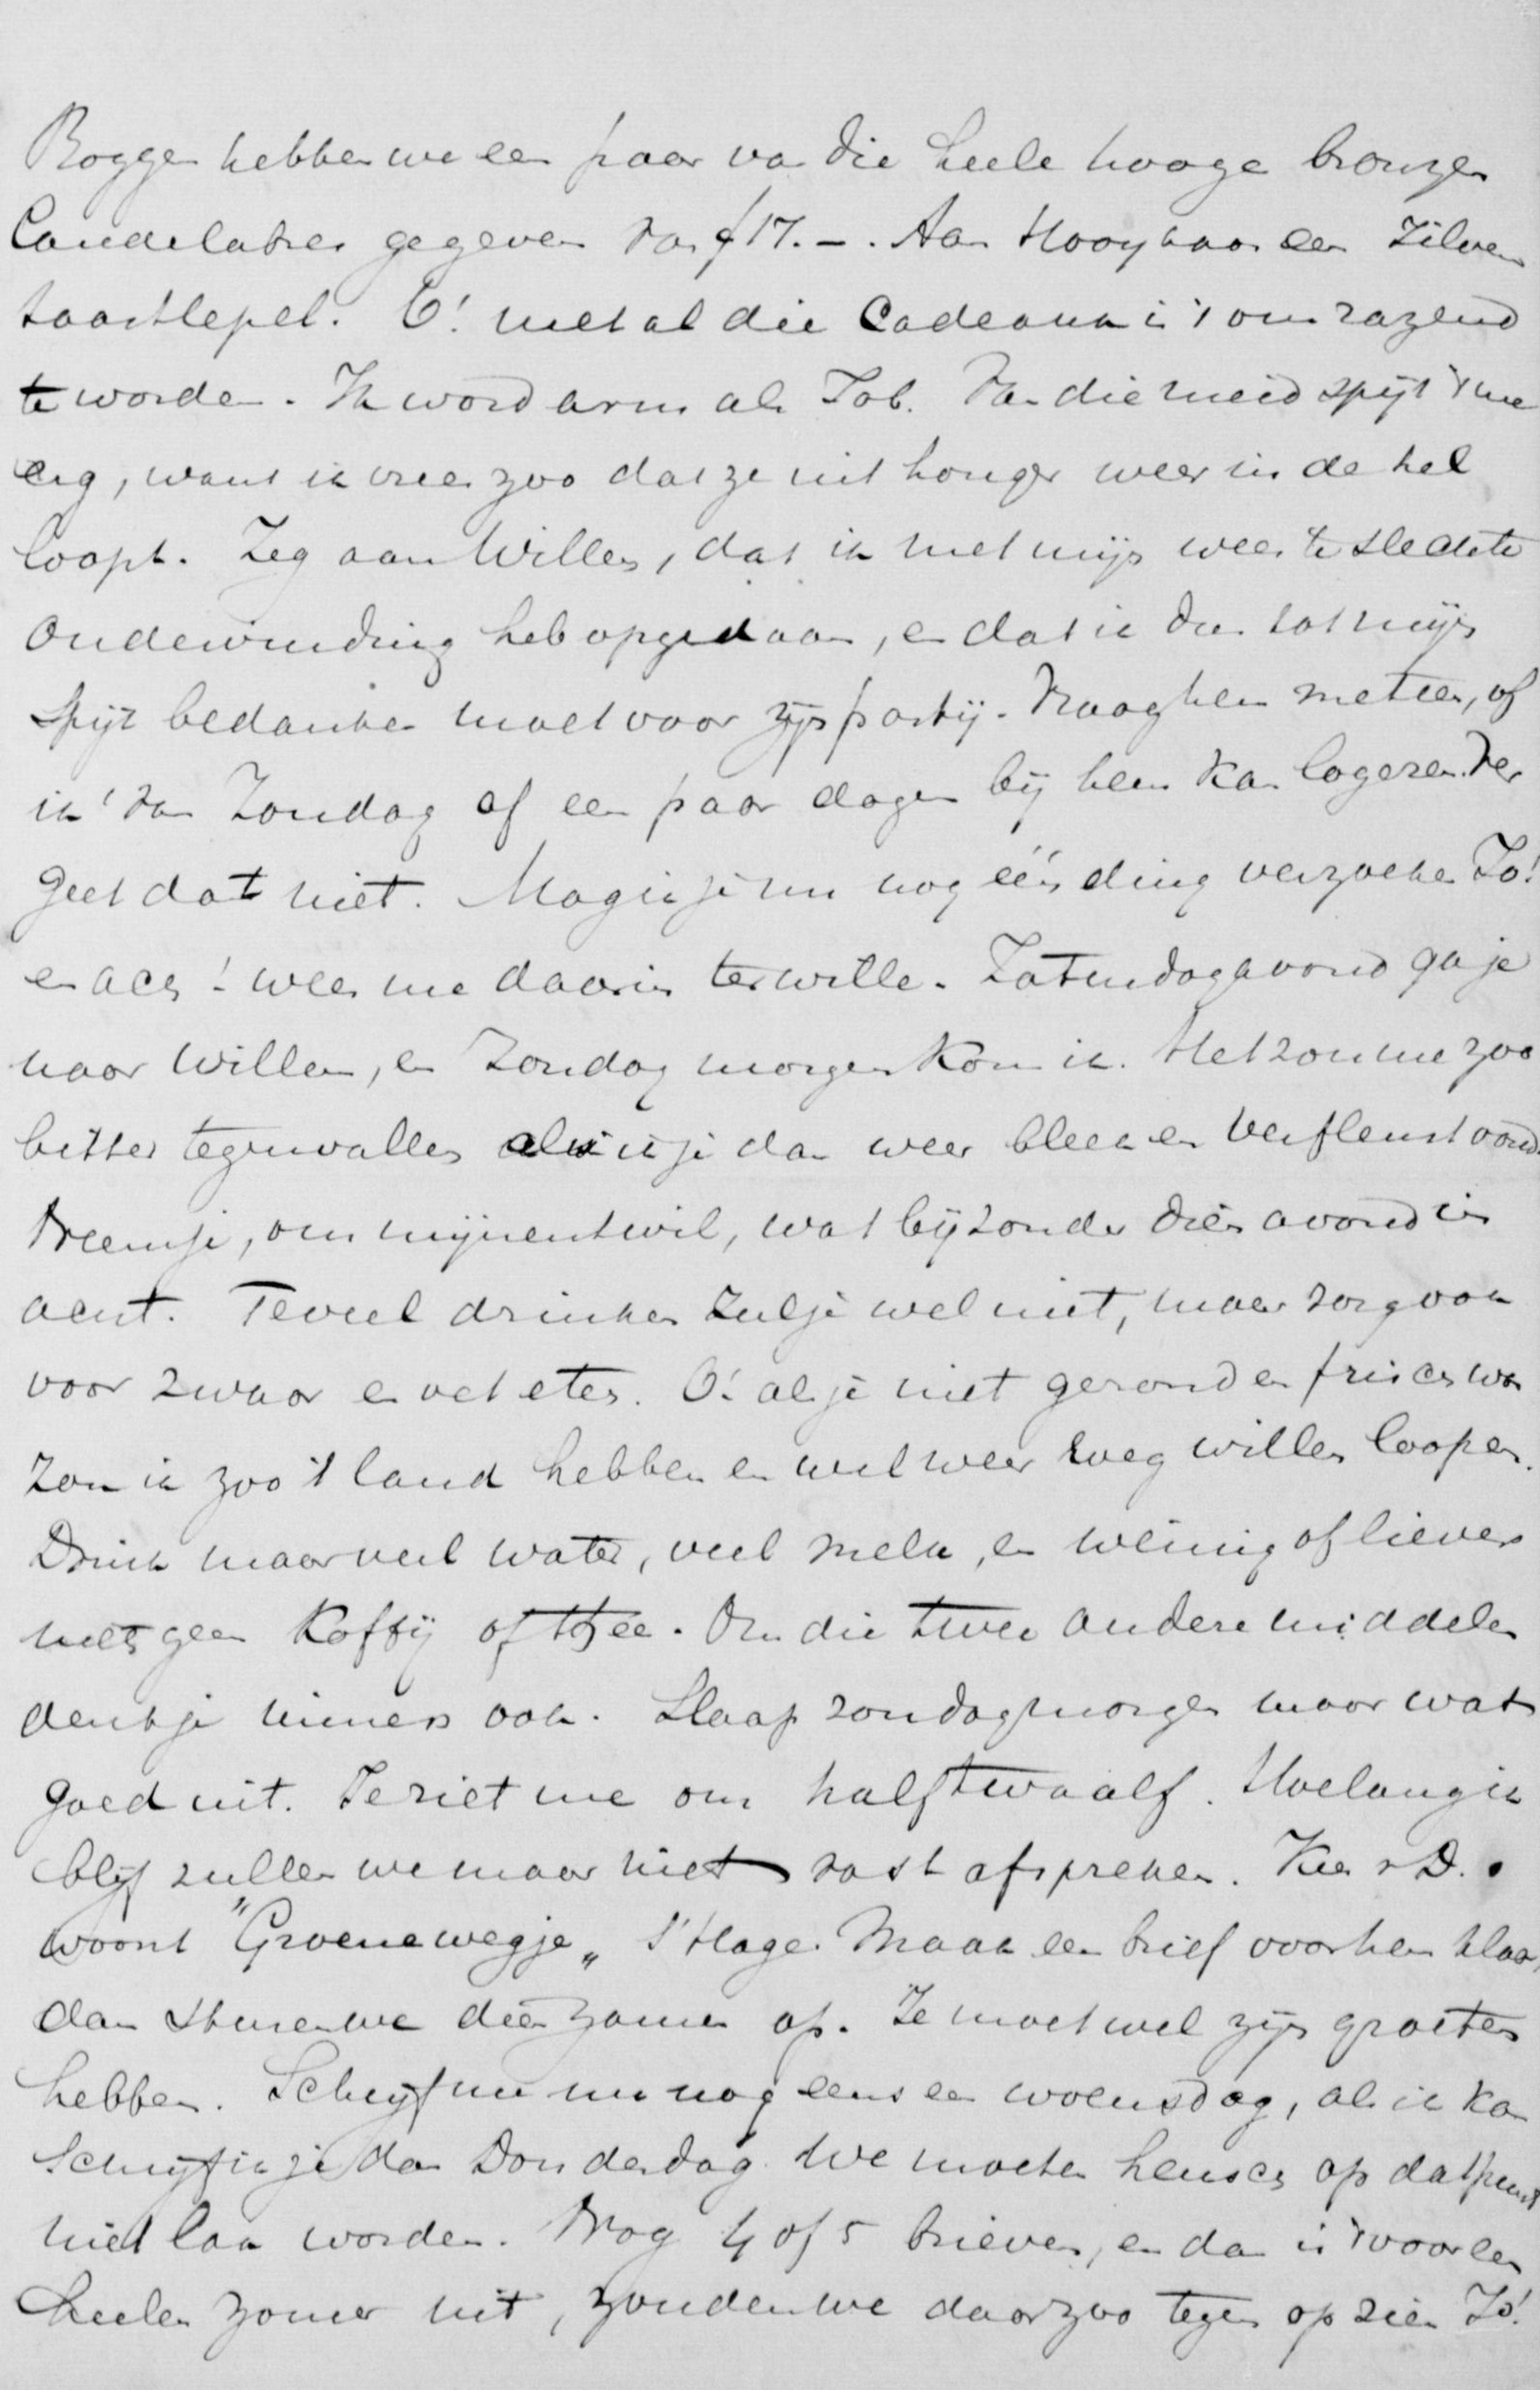 Rogge hebben we een paar van die heele hooge bronzen
Candelabres gegeven van f 17.-. Aan Hooykaas een zilveren
taartlepel. O! met al die Cadeaux is 't om razend
te worden. Ik word arm als Job. Van die meid spijt 't me
erg, want ik vrees zoo dat ze uit honger weer in de hel
loopt. Zeg aan Willem, dat ik met mijn weer te slechte
ondervinding heb opgedaan, en dat ik dus tot mijn
spijt bedanken moet voor zijn partij. Vraag hem meteen, of
ik van Zondag af een paar dagen bij hem kan logeren.
Geet dat niet. Mag ik je nu nog één ding verzoeken Jo!
en ach! wees me daarin terwille. Zaturdagavond ga je
naar Willem, en Zondag morgen kom ik. Het zou me zoo
bitter tegenvallen als ik je dan weer bleek en verflenst vond.
Neem je, om mijnentwil, wat bijzonder dien avond in
acht. Teveel drinken zul je wel niet, maar zorg ook
voor zwaar en vet eten. O! als je niet gezond en frisch was
zou ik zoo 't land hebben en wel weer weg willen loopen.
Drink maar veel water, veel melk, en weinig of liever
niets geen Koffij of thee. Om die twee andere middelen
denk je immers ook. Slaap zondagmorgen maar wat
goed uit. Je ziet me om half twaalf. Hoelang ik
blijf zullen we maar niet vast afspreken. Kee v D.
woont "Groenewegje" s'Hage. Maak een brief voor hem klaar,
dan sturen we dien zamen op. Je moet wel zijn groeten
hebben. Schrijf me nu nog eens en woensdag, als ik kan
schrijf ik je dan Donderdag. We moeten heusch op dat punt
niet lau worden. Nog 4 of 5 brieven, en dan is 't voor een
heelen zomer uit, zouden we daar zoo tegen op zien Jo!